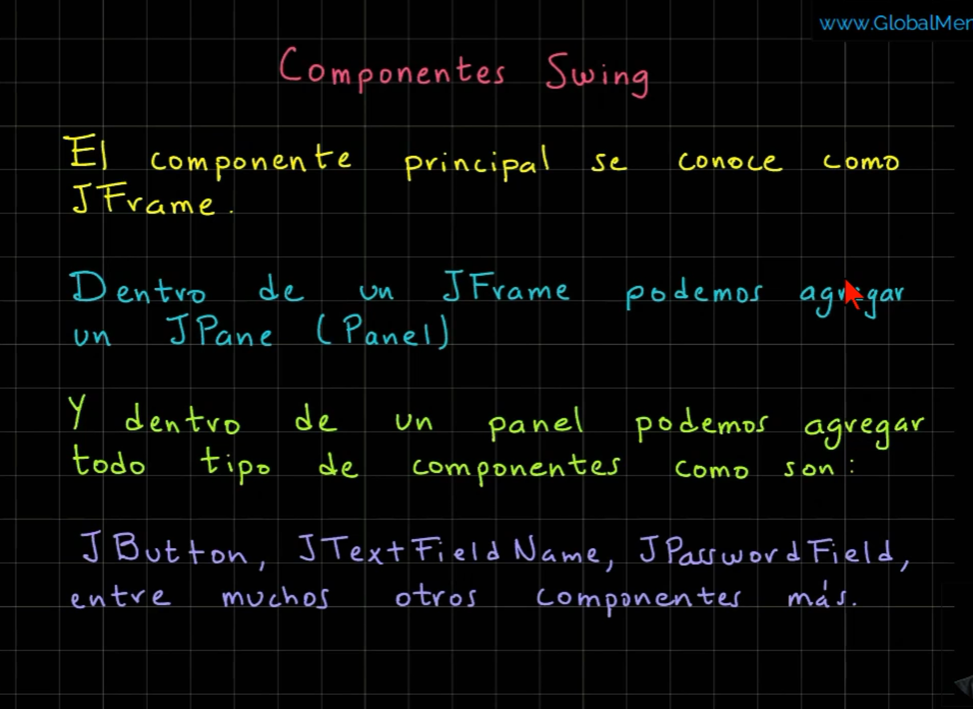 www.GlobalMen
Componentes Swing
El componente principal se conoce como
JFrame.
Dentro de un JFrame podemos agregar
un JPane (Panel)
Y dentro de un panel podemos agregar
todo tipo de componentes como son:
JButton, JTextFieldName, JPasswordField,
entre muchos otros componentes más.